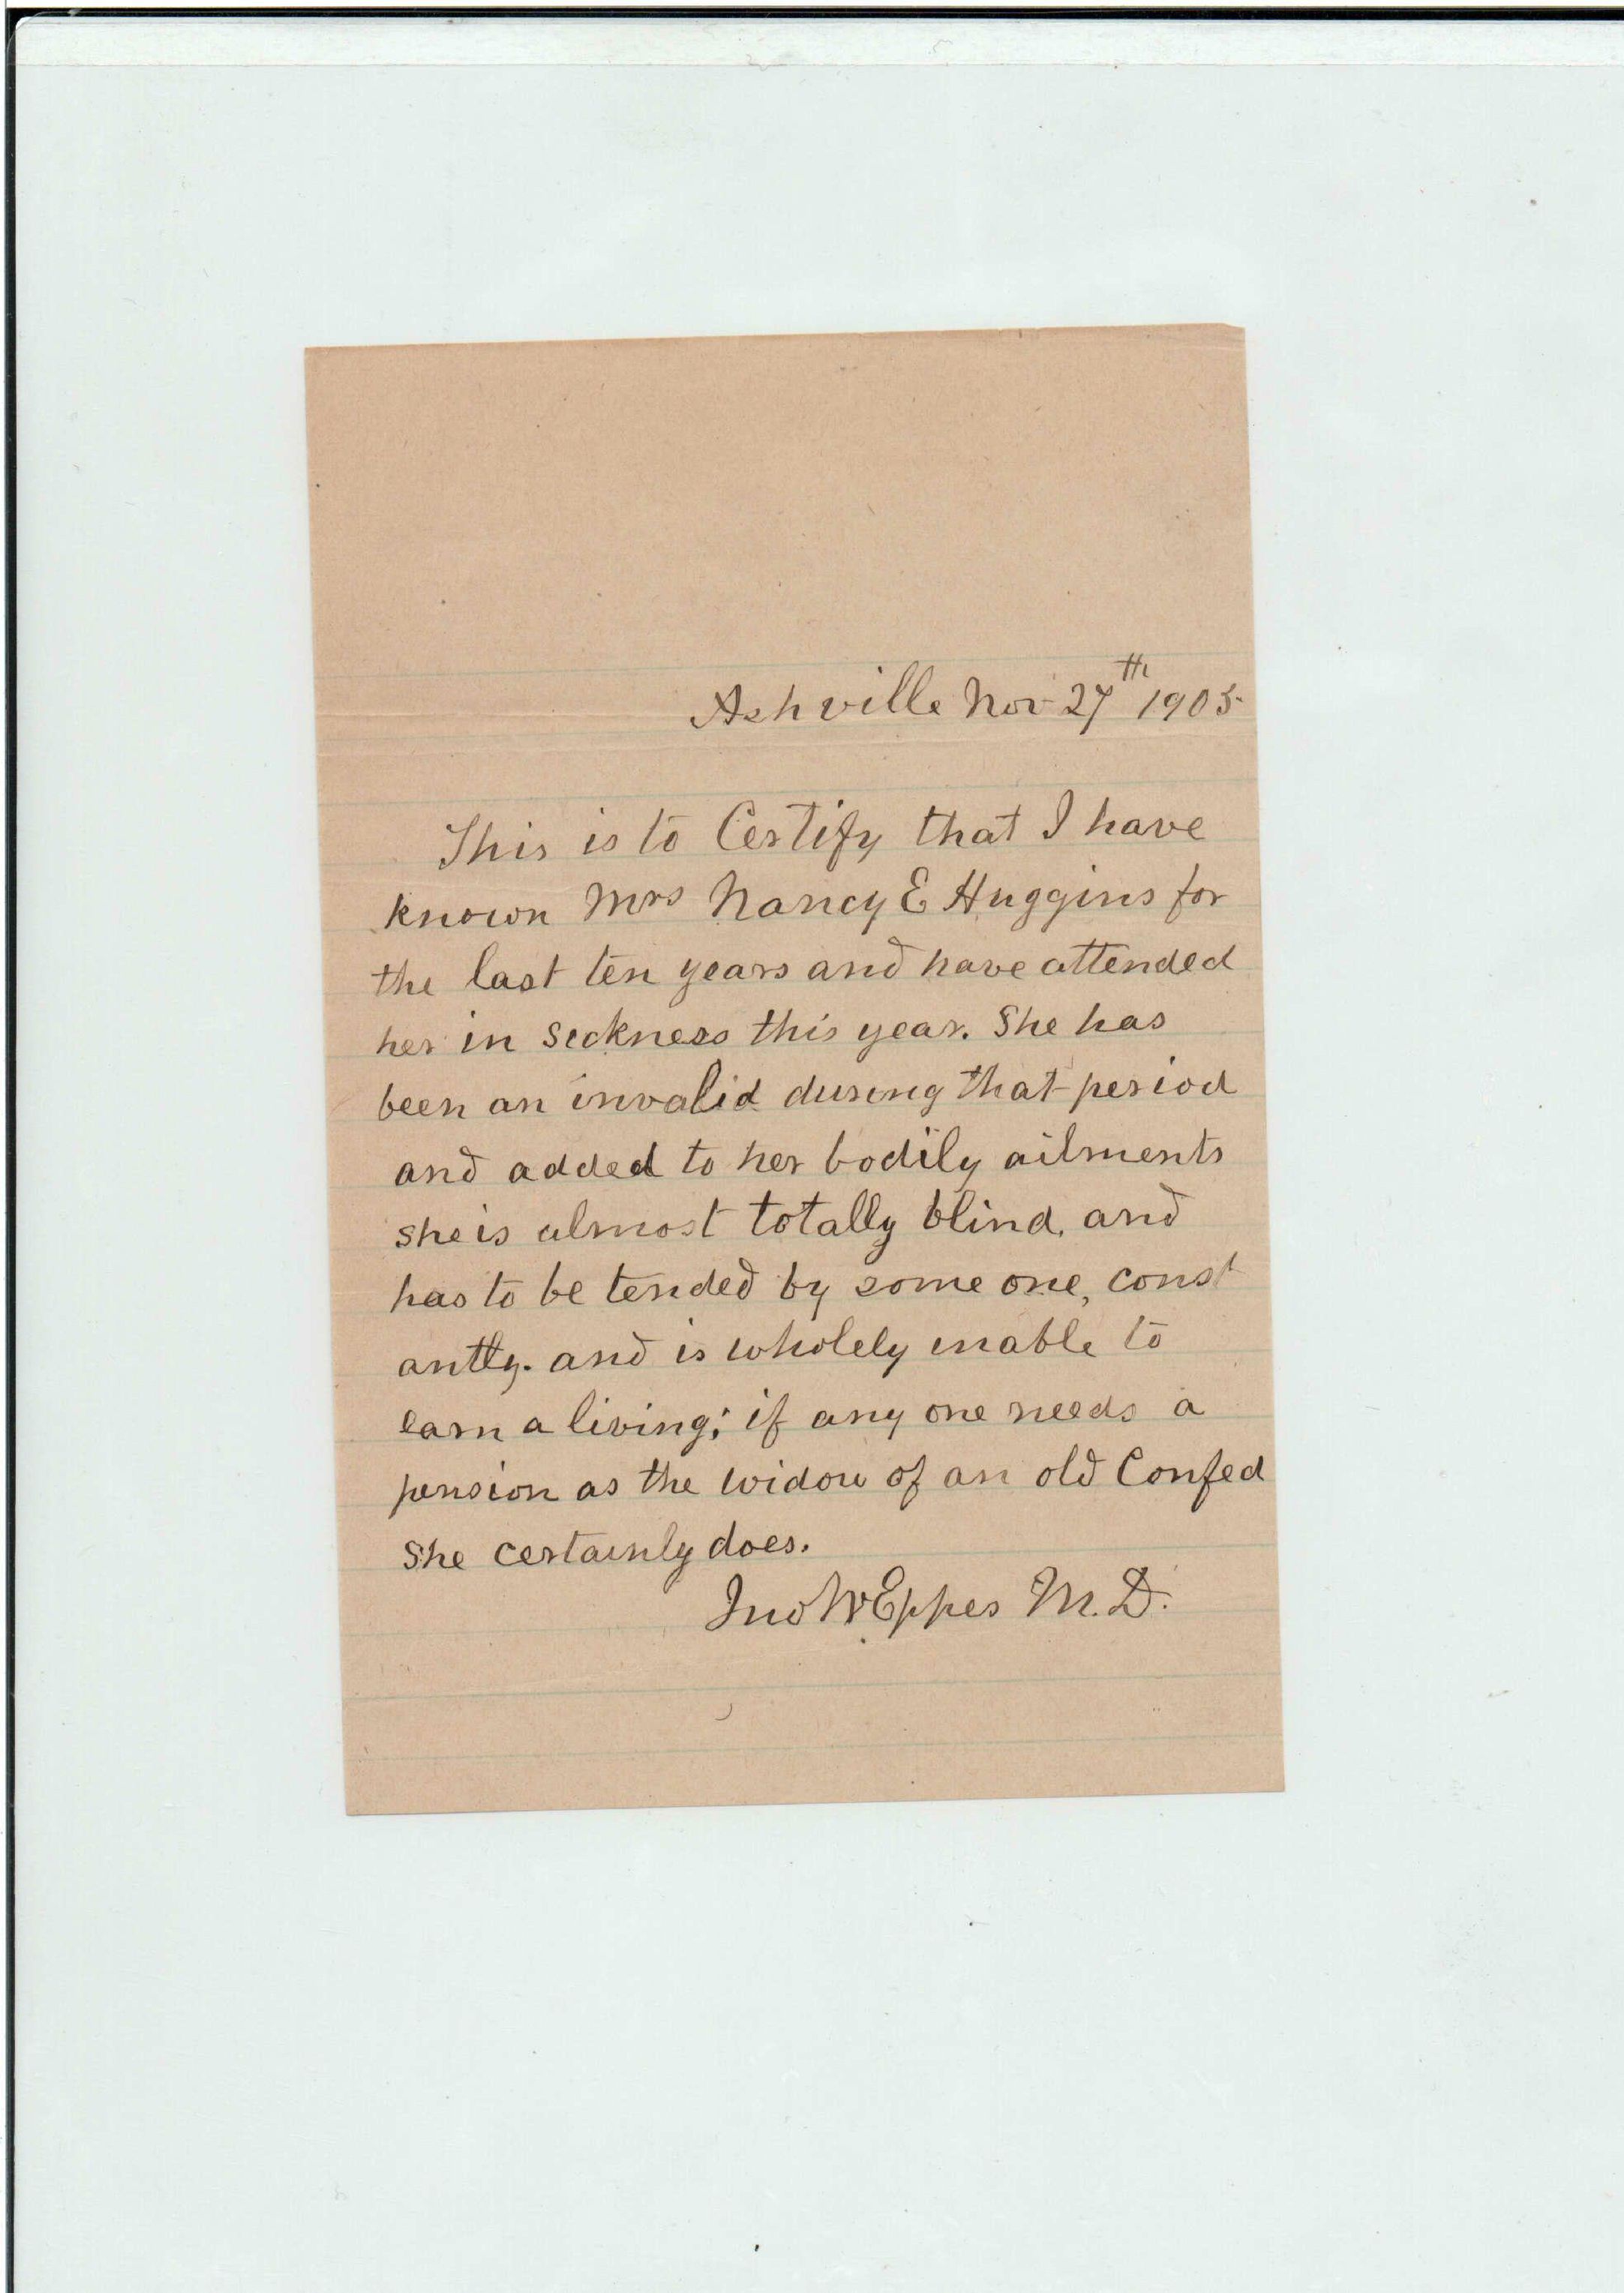 Ashville Nov 27th 1905
This is to Certify that I have
known Mrs Nancy E Huggins for
the last ten years and have attended
her in sickness this year. She has
been an invalid during that period
and added to her bodily ailments
she is almost totally blind, and
has to be tended by some one, const
antly. and is wholely unable to
earn a living; if any one needs a
pension as the widow of an old Confed
she certainly does.
Jno W Eppes M.D.